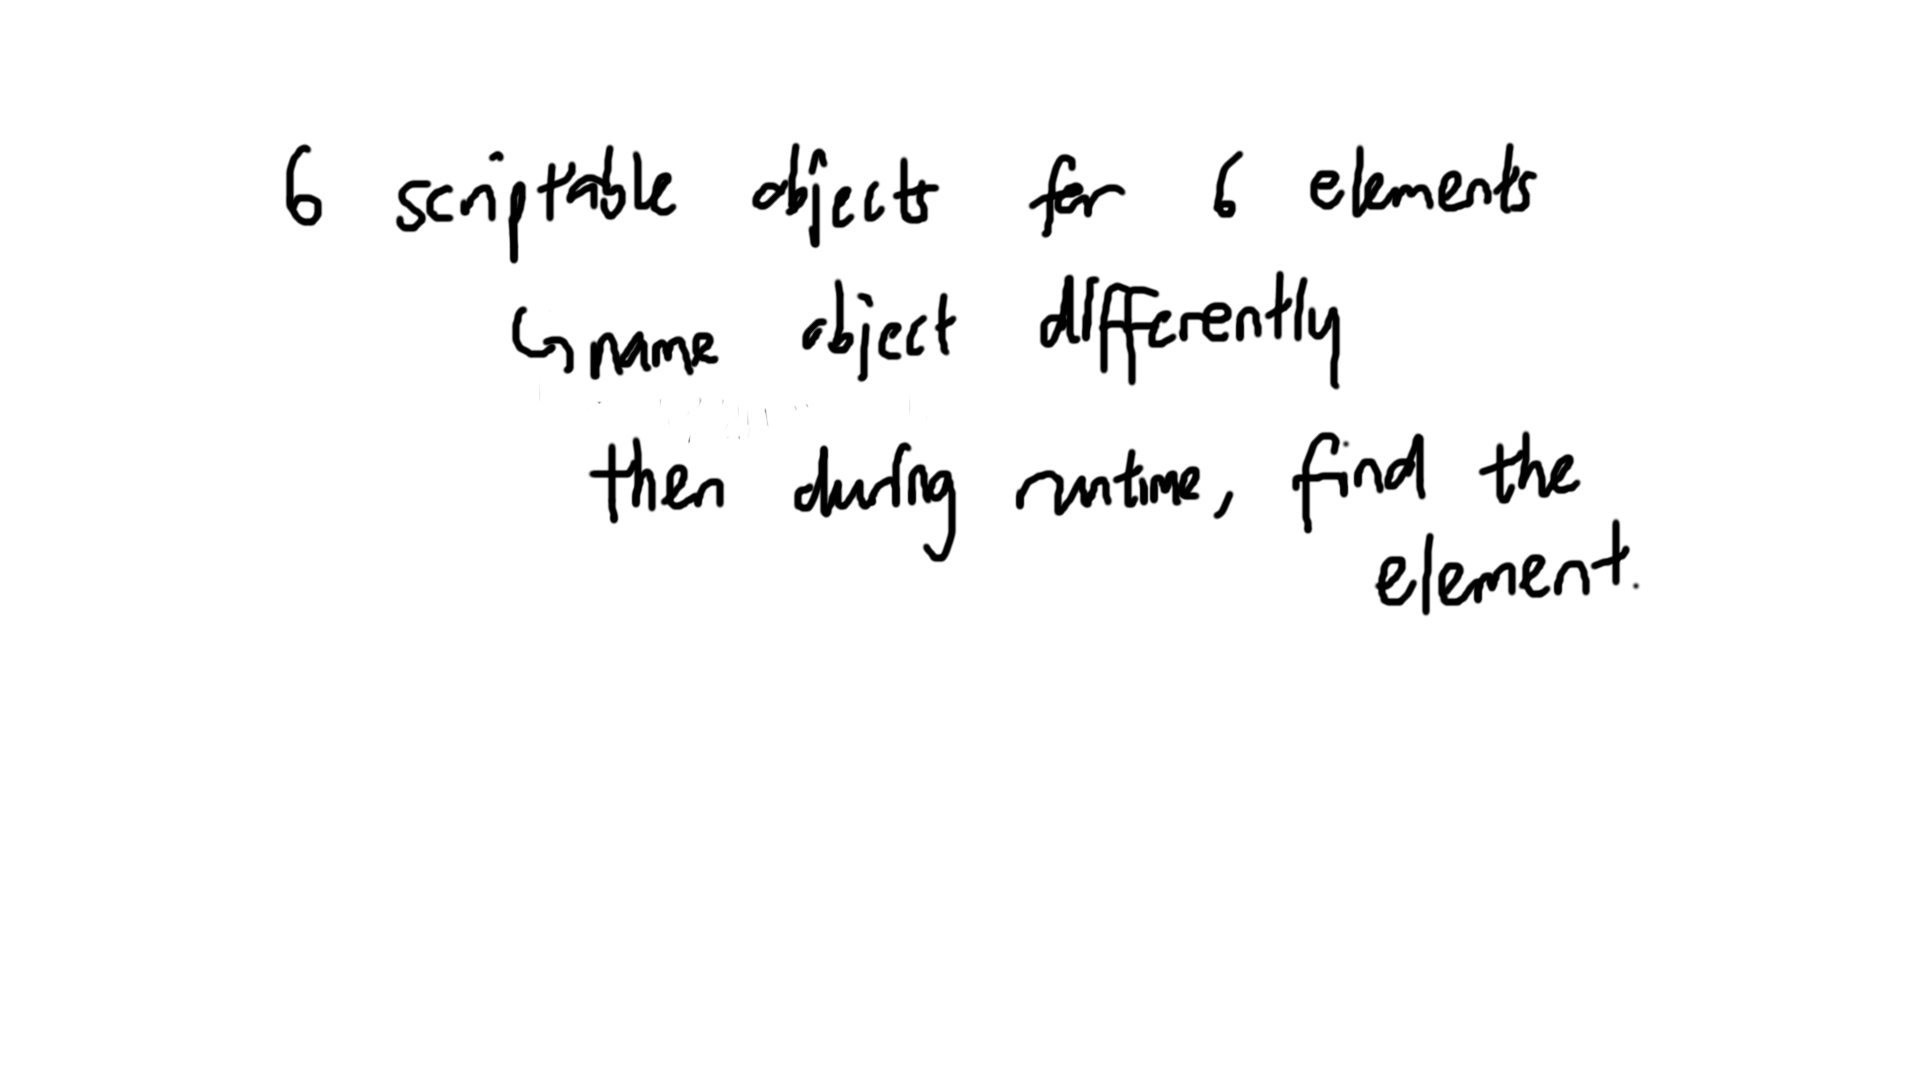 6 scriptable objects for 6 elements
↳ name object differently
then during runtime, find the
element.